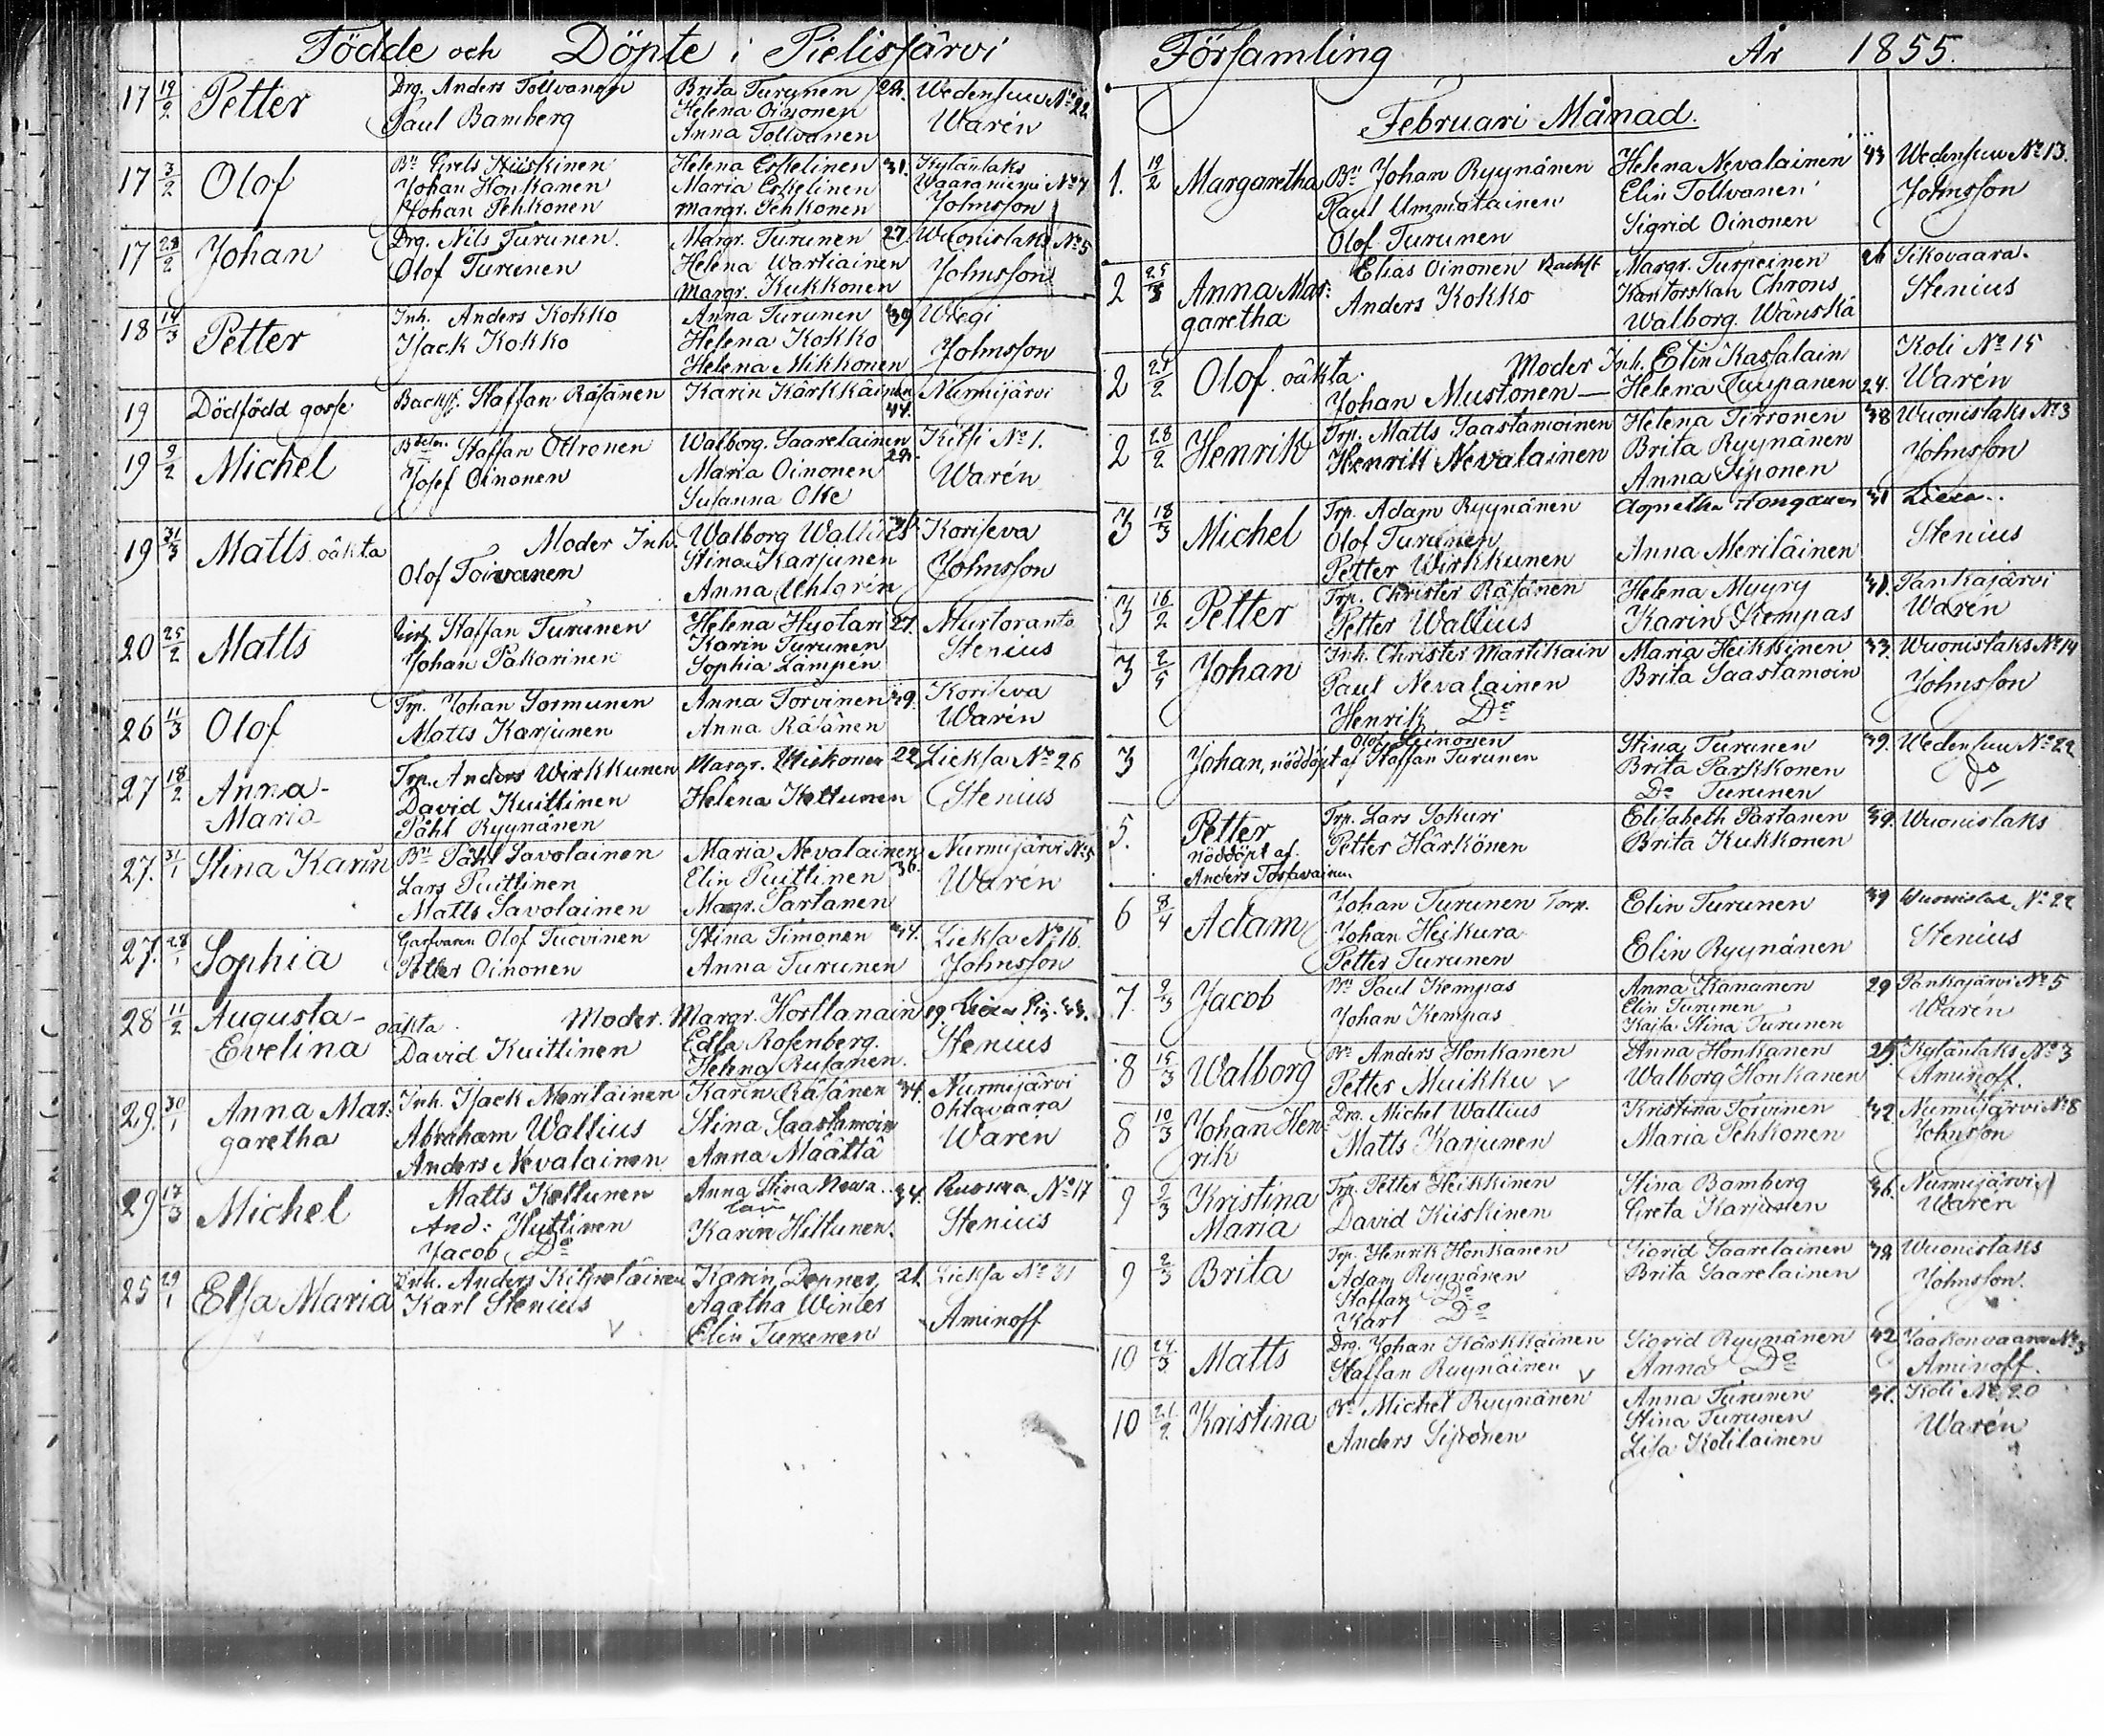 Födde och Döpte i Pielisjärvi
17 19/2 Petter Drg. Anders Tollvanen Brita Turunen 22. Wedensuu No 22
Paul Bamberg Helena Oinonen Warén
Anna Tollvanen
17 3/2 Olof Bn Grels Kiiskinen Helena Eskelinen 31. Kylänlaks
Johan Honkanen Maria Eskelinen Waaraniemi No 7
Johan Pehkonen Margr. Pehkonen Johnsson
17 28/2 Johan Drg. Nils Turunen. Margr. Turunen 27. Wuonislaks No 5
Olof Turunen Helena Wartiainen Johnsson
Margr. Kukkonen
18 14/3 Petter Inh. Anders Kokko Anna Turunen 39
Isack Kokko Helena Kokko Johnsson
Helena Mikkonen
19 Dödfödd gosse Backst. Staffan Räsänen Karin Kärkkäinen 44. Nurmijärvi
19 9/2 Michel Staffan Ottronen Walborg Saarelainen Kitsi No 1.
Josef Oinonen Maria Oinonen Warén
Susanna Oke
19 31/3 Matts oäkta Moder Inh. Walborg Wallius Koriseva
Olof Toivanen Stina Karjunen Johnsson
Anna Uhlgrin
20 25/2 Matts Staffan Turunen Helena Huotari 27. Murtoranta
Johan Pakarinen Karin Turunen Stenius
Sophia Lampén
26 11/3 Olof Trp. Johan Sormunen Anna Torvinen 49. Koriseva
Matts Karjunen Anna Räsänen Warén
27 18/2 Anna- Trp. Anders Wirkkunen Margr. Miikonen 22 Lieksa No 26
Maria David Kuittinen Helena Kettunen Stenius
Påhl Ryynänen
27. 31/1 Stina Karin Bn Påhl Savolainen Maria Nevalainen Nurmijärvi No 5
Lars Puittinen Elin Puittinen 36. Warén
Matts Savolainen Magr. Partanen
27. 28/1 Sophia Garfvaren Olof Tuovinen Stina Timonen 47. Lieksa No 16.
Petter Oinonen Anna Turunen Johnsson
28 11/2 Augusta- oäkta Moder. Margr. Horttanain 19.
Evelina David Kuittinen Edla Rosenberg. Stenius
Helena Rusanen.
29. 30/1 Anna Mar- Inh. Isack Meriläinen Karin Räsänen 34. Nurmijärvi
garetha Abraham Wallius Stina Saastamoin Oktavaara
Anders Nevalainen Anna Määttä Warén
29 17/3 Michel Matts Kettunen Anna Stina Neva- 34. No 17
lain
And: Huttinen Karin Hiltunen. Stenius
Jacob Do
25 29/1 Elsa Maria Inh. Anders Kilpeläinen Karin Donner 21. Lieksa No 31
Karl Stenius Agatha Winter Aminoff
Elin Turunen
Församling År 1855.
Februari Månad.
1. 19/2 Margaretha Bn Johan Ryynänen Helena Nevalainen 43 Wedensuu No 13.
Paul Ummatainen Elin Tollvanen Johnsson
Olof Turunen Sigrid Oinonen
2 25/3 Anna Mar: Elias Oinonen Backst. Margr. Turpeinen 26 Sikovaara.
garetha Anders Kokko Kantorskan Chrons Stenius
Walborg Wänskä
2 21/2 Olof oäkta. Moder Inh. Elin Kassalain Koli No 15
Johan Mustonen — Helena Tuupanen 24. Warén
2 28/2 Henrik Trp. Matts Saastamoinen Helena Pirronen 38 Wuonislaks No 3
Henrik Nevalainen Brita Ryynänen Johnsson
Anna Siponen
3 18/3 Michel Trp. Adam Ryynänen Agnetha 31
Olof Turunen Anna Meriläinen Stenius
Petter Wirkkunen
3 16/2 Petter Trp. Christer Räsänen Helena Muyry 41. Pankajärvi
Petter Wallius Karin Kempas Warén
3 Johan Inh. Christer Martikain Maria Heikkinen 33. Wuonislaks No 14
Paul Nevalainen Brita Saastamoin Johnsson
Henrik Do
3 Johan, nöddöpt af Staffan Turunen Stina Turunen 39. Wedensuu No 22
Olof Heinonen Brita Parkkonen Do
Do Turunen
5. Petter Trp. Lars Sokuri Elisabeth Partanen 39. Wuonislaks
nöddöpt af Petter Härkönen Brita Kukkonen
Anders
6 8/4 Adam Johan Turunen Torp. Elin Turunen 39 No 22
Johan Heikura Elin Ryynänen Stenius
Petter Turunen
7. 9/3 Jacob Bn Paul Kempas Anna Kananen 29 Pankajärvi No 5
Johan Kempas Elin Turunen Warén
Kajsa Stina Turunen
8 15/3 Walborg Bn Anders Honkanen Anna Honkanen 25. Kylänlaks No 3
Petter Muikku Walborg Honkanen Aminoff.
8 10/3 Johan Hen- Drg. Michel Wallius Kristina Torvinen 42 Nurmijärvi No 8
rik Matts Karjunen Maria Pehkonen Johnsson
9 9/3 Kristina Trp. Petter Heikkinen Stina Bamberg 36. Nurmijärvi
Maria David Kiiskinen Greta Karjusten Warén
9 2/3 Brita Trp. Henrik Honkanen Sigrid Saarelainen 38 Wuonislaks
Adam Ryynänen Brita Saarelainen Johnsson.
Staffan Do
Karl Do
10 24/3 Matts Drg. Johan Kärkkäinen Sigrid Ryynänen 42 Jaakonvaara No 3
Staffan Ryynäinen Anna Do Aminoff.
10 21/2 Kristina Bn Michel Ryynänen Anna Turunen 31. Koli No 20
Anders Siponen Stina Turunen Warén
Lisa Kotilainen